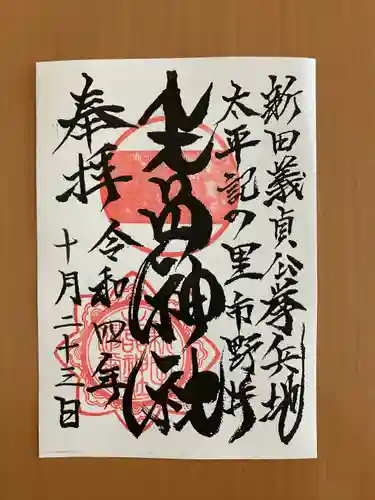 新田義貞公挙兵地
太平記の里 市野井
生品神社
奉拝
令和四年
十月二十三日